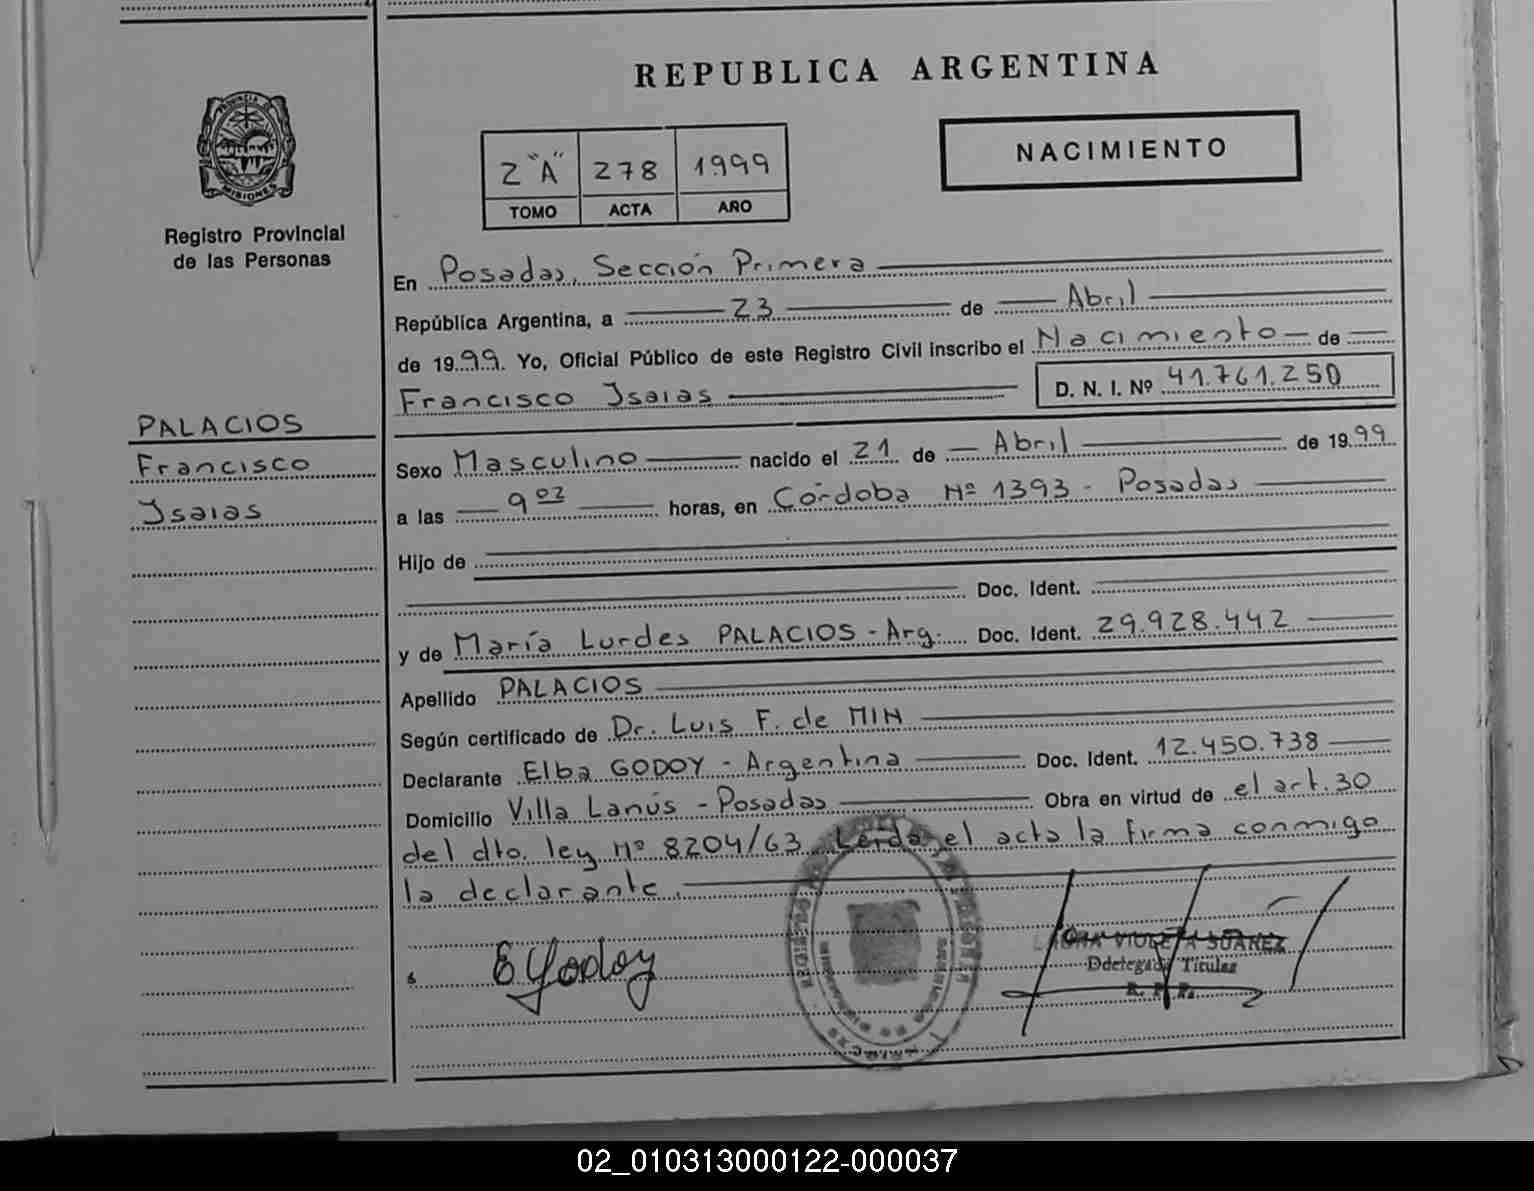 REPUBLICA ARGENTINA
PROVINCIA DE
MISIONES
Registro Provincial
de las Personas
2 "A" 278 1999
TOMO ACTA AÑO
NACIMIENTO
En Posadas, Sección Primera
República Argentina, a 23 de Abril
de 1999. Yo, Oficial Público de este Registro Civil inscribo el Nacimiento de
Francisco Isaias D. N. I. Nº 41.761.250
PALACIOS
Francisco
Isaias
Sexo Masculino nacido el 21 de Abril de 1999
a las 9 02 horas, en Córdoba Nº 1393 - Posadas
Hijo de
Doc. Ident.
y de María Lurdes PALACIOS - Arg. Doc. Ident. 29.928.442
Apellido PALACIOS
Según certificado de Dr. Luis F. de MIN
Declarante Elba GODOY - Argentina Doc. Ident. 12.450.738
Domicilio Villa Lanús - Posadas Obra en virtud de el art. 30
del dto. ley Nº 8204/63. Leída el acta la firma conmigo
la declarante.
E Godoy
LAURA VIOLETA SUAREZ
Ddelegada Titular
R. P. P.
02_010313000122-000037